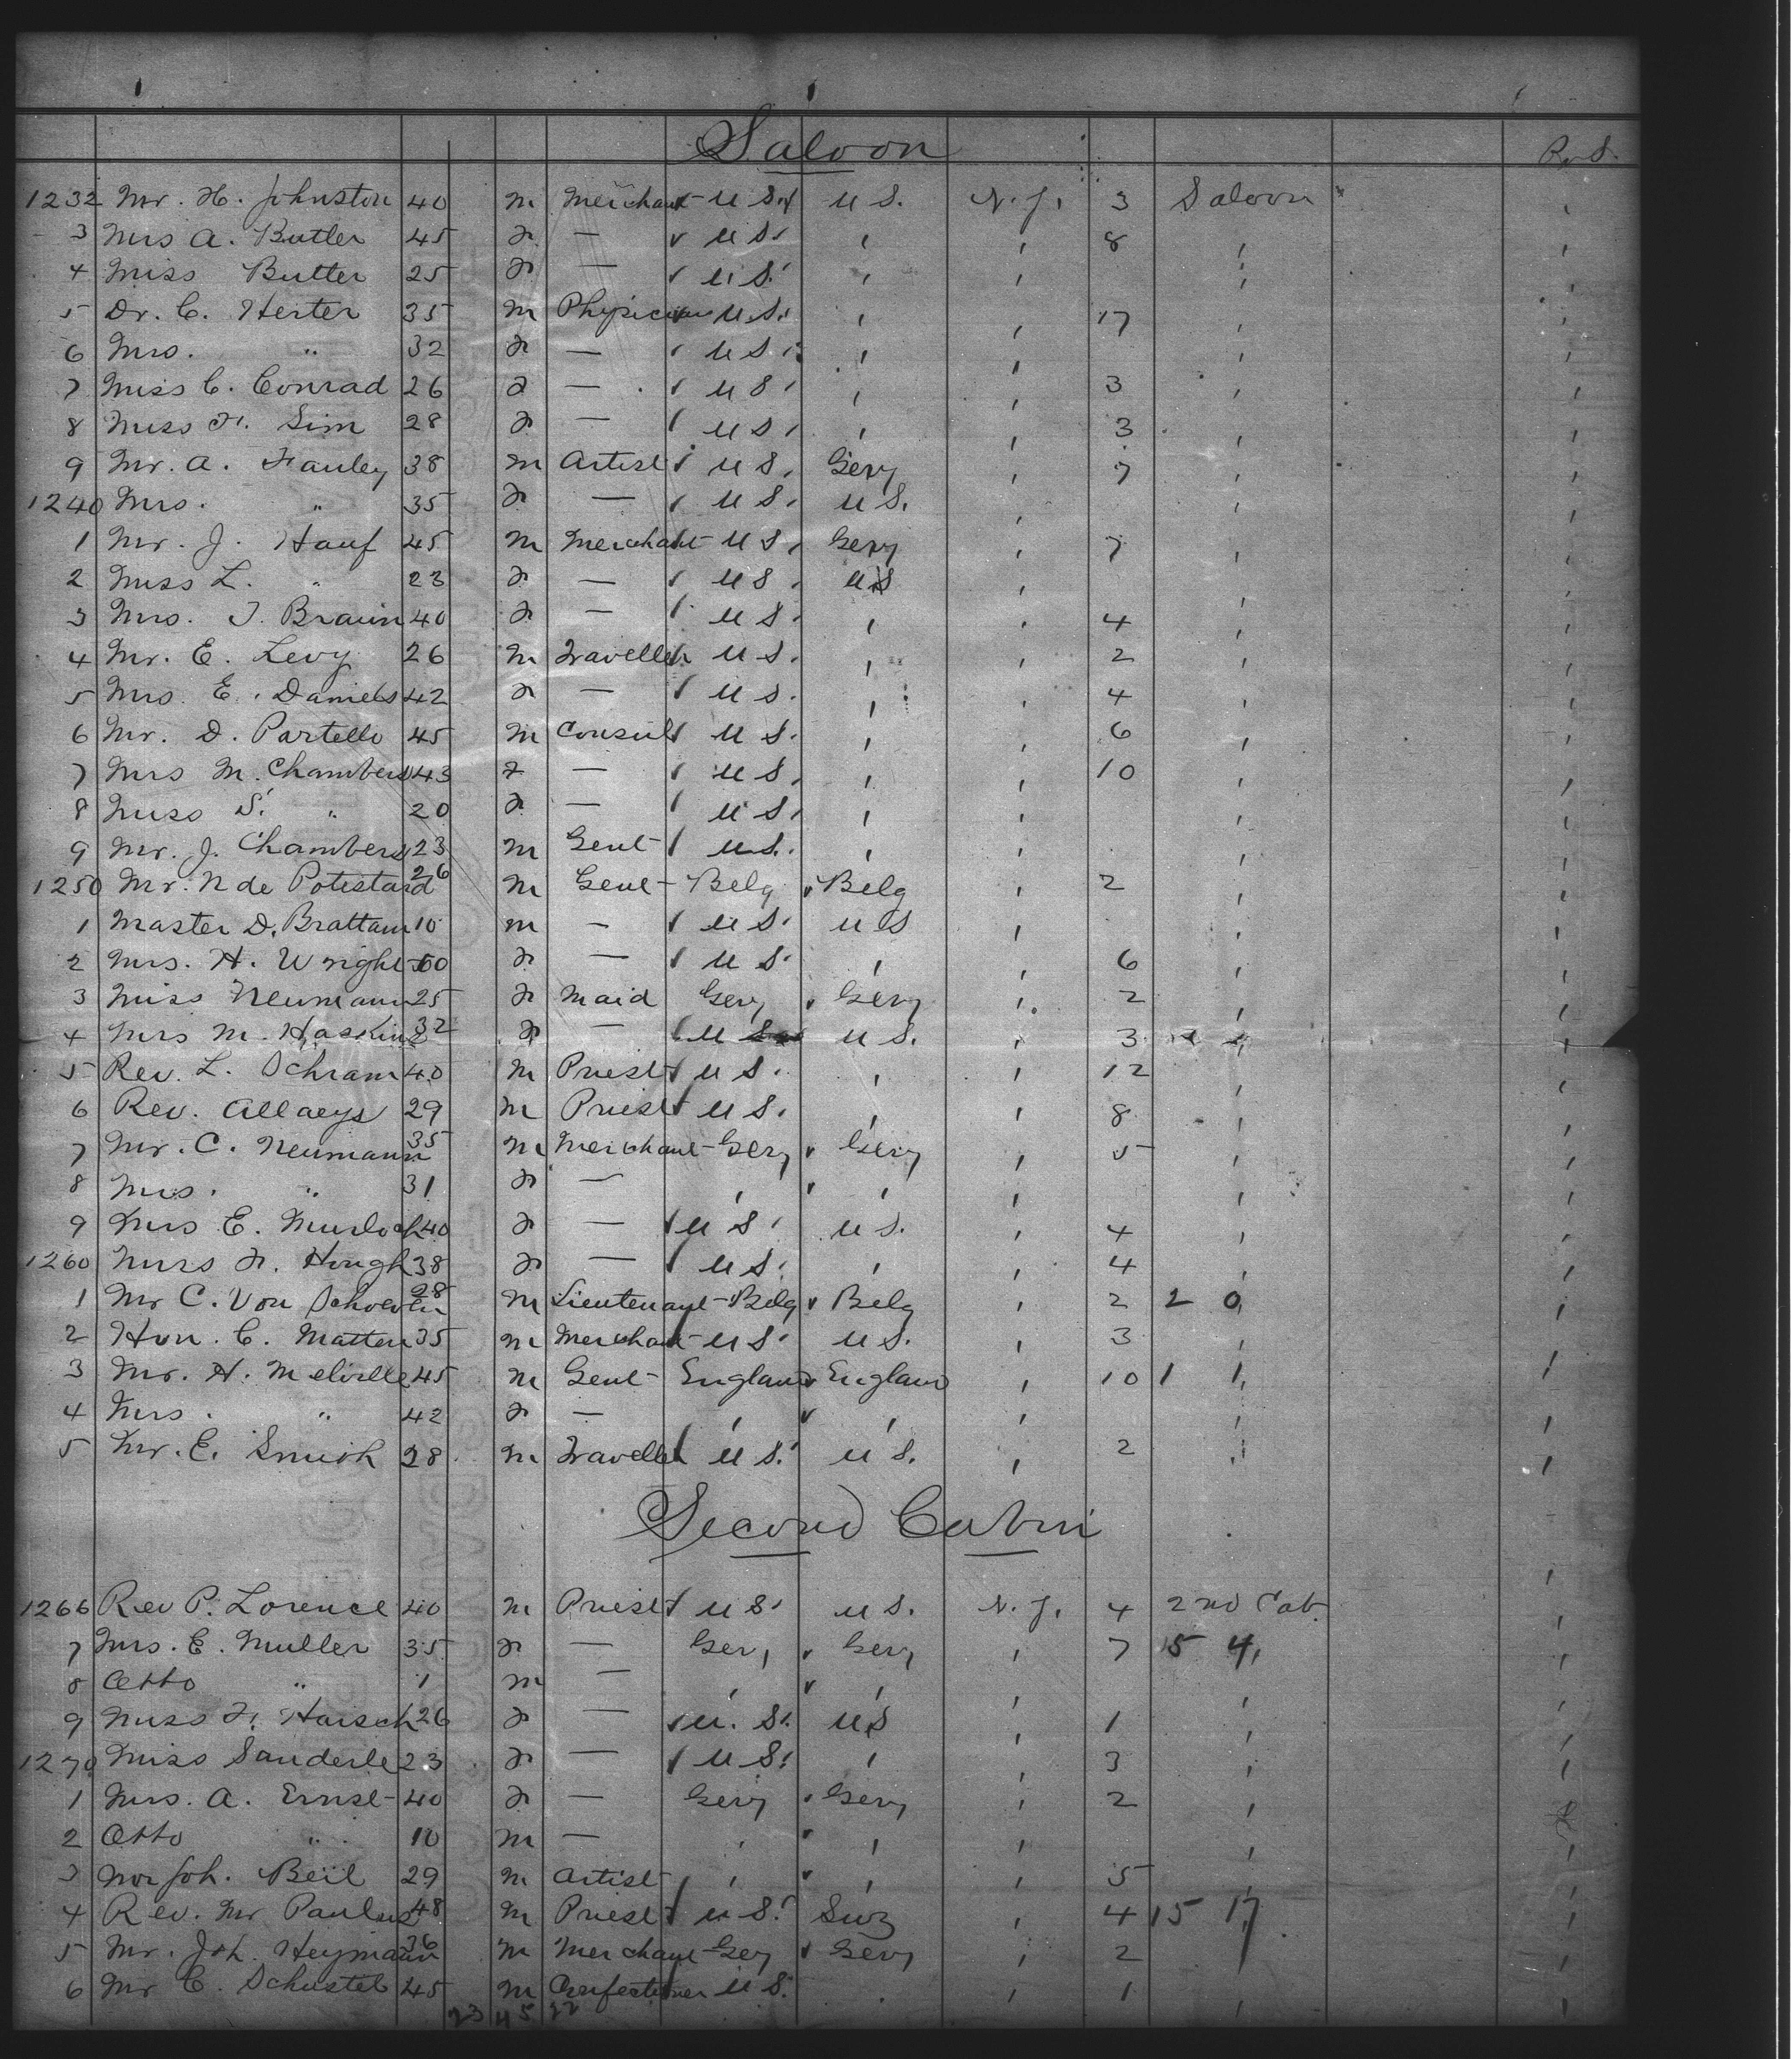 Saloon
P. & S.
1232 Mr. H. Johnston 40 m Merchant U S. U S. N. J. 3 Saloon
3 Mrs A. Butler 45 F — U S. , , 8 ,
4 Miss Butler 25 F — U S. , , ,
5 Dr. C. Herter 35 m Physician U. S. , , 17 ,
6 Mrs. " 32 F — U S. , , ,
7 Miss C. Conrad 26 F — U S. , , 3 ,
8 Miss F. Sim 28 F — U S. , , 3 ,
9 Mr. A. Fanley 38 m Artist U S. Gery , 7 ,
1240 Mrs. " 35 F — U S. U S. , ,
1 Mr. J. Hauf 45 m Merchant U S. Gery , 7 ,
2 Miss L. " 23 F — U S. U S , ,
3 Mrs. J. Braun 40 F — U S. , , 4 ,
4 Mr. E. Levy 26 m Traveller U S. , , 2 ,
5 Mrs E. Daniels 42 F — U S. , , 4 ,
6 Mr. D. Partello 45 m Consul U S. , , 6 ,
7 Mrs M. Chambers 43 F — U S. , , 10 ,
8 Miss S. " 20 F — U S. , , ,
9 Mr. J. Chambers 23 m Gent U. S. , , ,
1250 Mr. N de Potestad 26 m Gent Belg Belg , 2 ,
1 Master D. Brattam 10 m — U S. U S , ,
2 Mrs. H. Wright 50 F — U S. , , 6 ,
3 Miss Neumann 25 F Maid Gery Gery , 2 ,
4 Mrs M. Haskins 32 F — U S U S. , 3 ,
5 Rev. L. Schram 40 m Priest U S. , , 12 ,
6 Rev. Allaeys 29 m Priest U S. , , 8 ,
7 Mr. C. Neumann 35 m Merchant Gery Gery , 5 ,
8 Mrs. " 31 F — , , , ,
9 Mrs E. Murdoch 40 F — U S. U S. , 4 ,
1260 Mrs F. Hough 38 F — U S. , , 4 ,
1 Mr C. Von 28 m Lieutenant Belg Belg , 2 2 0 ,
2 Hon. C. Matten 35 m Merchant U S. U S. , 3 ,
3 Mr. H. Melville 45 m Gent England England , 10 1 1 ,
4 Mrs. " 42 F — , , , ,
5 Mr. E. Smith 28 m Traveller U S. U S. , 2 ,
Second Cabin
1266 Rev P. Lorence 40 m Priest U S. U S. N. J. 4 2nd Cab.
7 Mrs. E. Muller 35 F — Gery Gery , 7 15 4 ,
8 Otto " 1 m — , , , ,
9 Miss F. Haisch 26 F — U. S. U S , 1 ,
1270 Miss Sanderle 23 F — U S. , , 3 ,
1 Mrs. A. Ernst 40 F — Gery Gery , 2 ,
2 Otto " 10 m — , , , ,
3 Mr Joh. Beil 29 m Artist , , , 5 ,
4 Rev. Mr Paulus 48 m Priest U S. Swz , 4 15 17
5 Mr. Joh. Heymann 36 m Merchant Gery Gery , 2 ,
6 Mr C. Schustel 45 m Confectioner U S. , , 1 ,
23 45 22